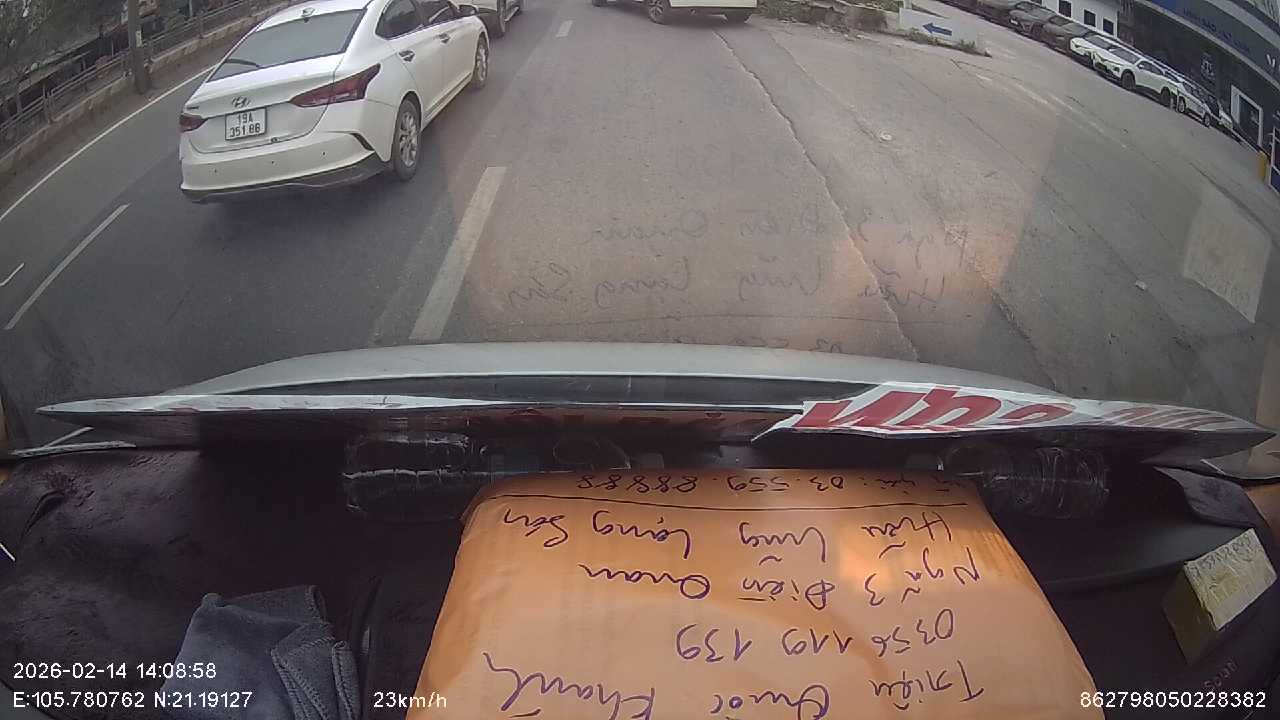 19A
351.86
Triệu Quốc Khánh
0356 119 139
Ngã 3 Điềm Quan
Hữu Lũng Lạng Sơn
03.559.88888
2026-02-14 14:08:58
E:105.780762 N:21.19127 23km/h 862798050228382